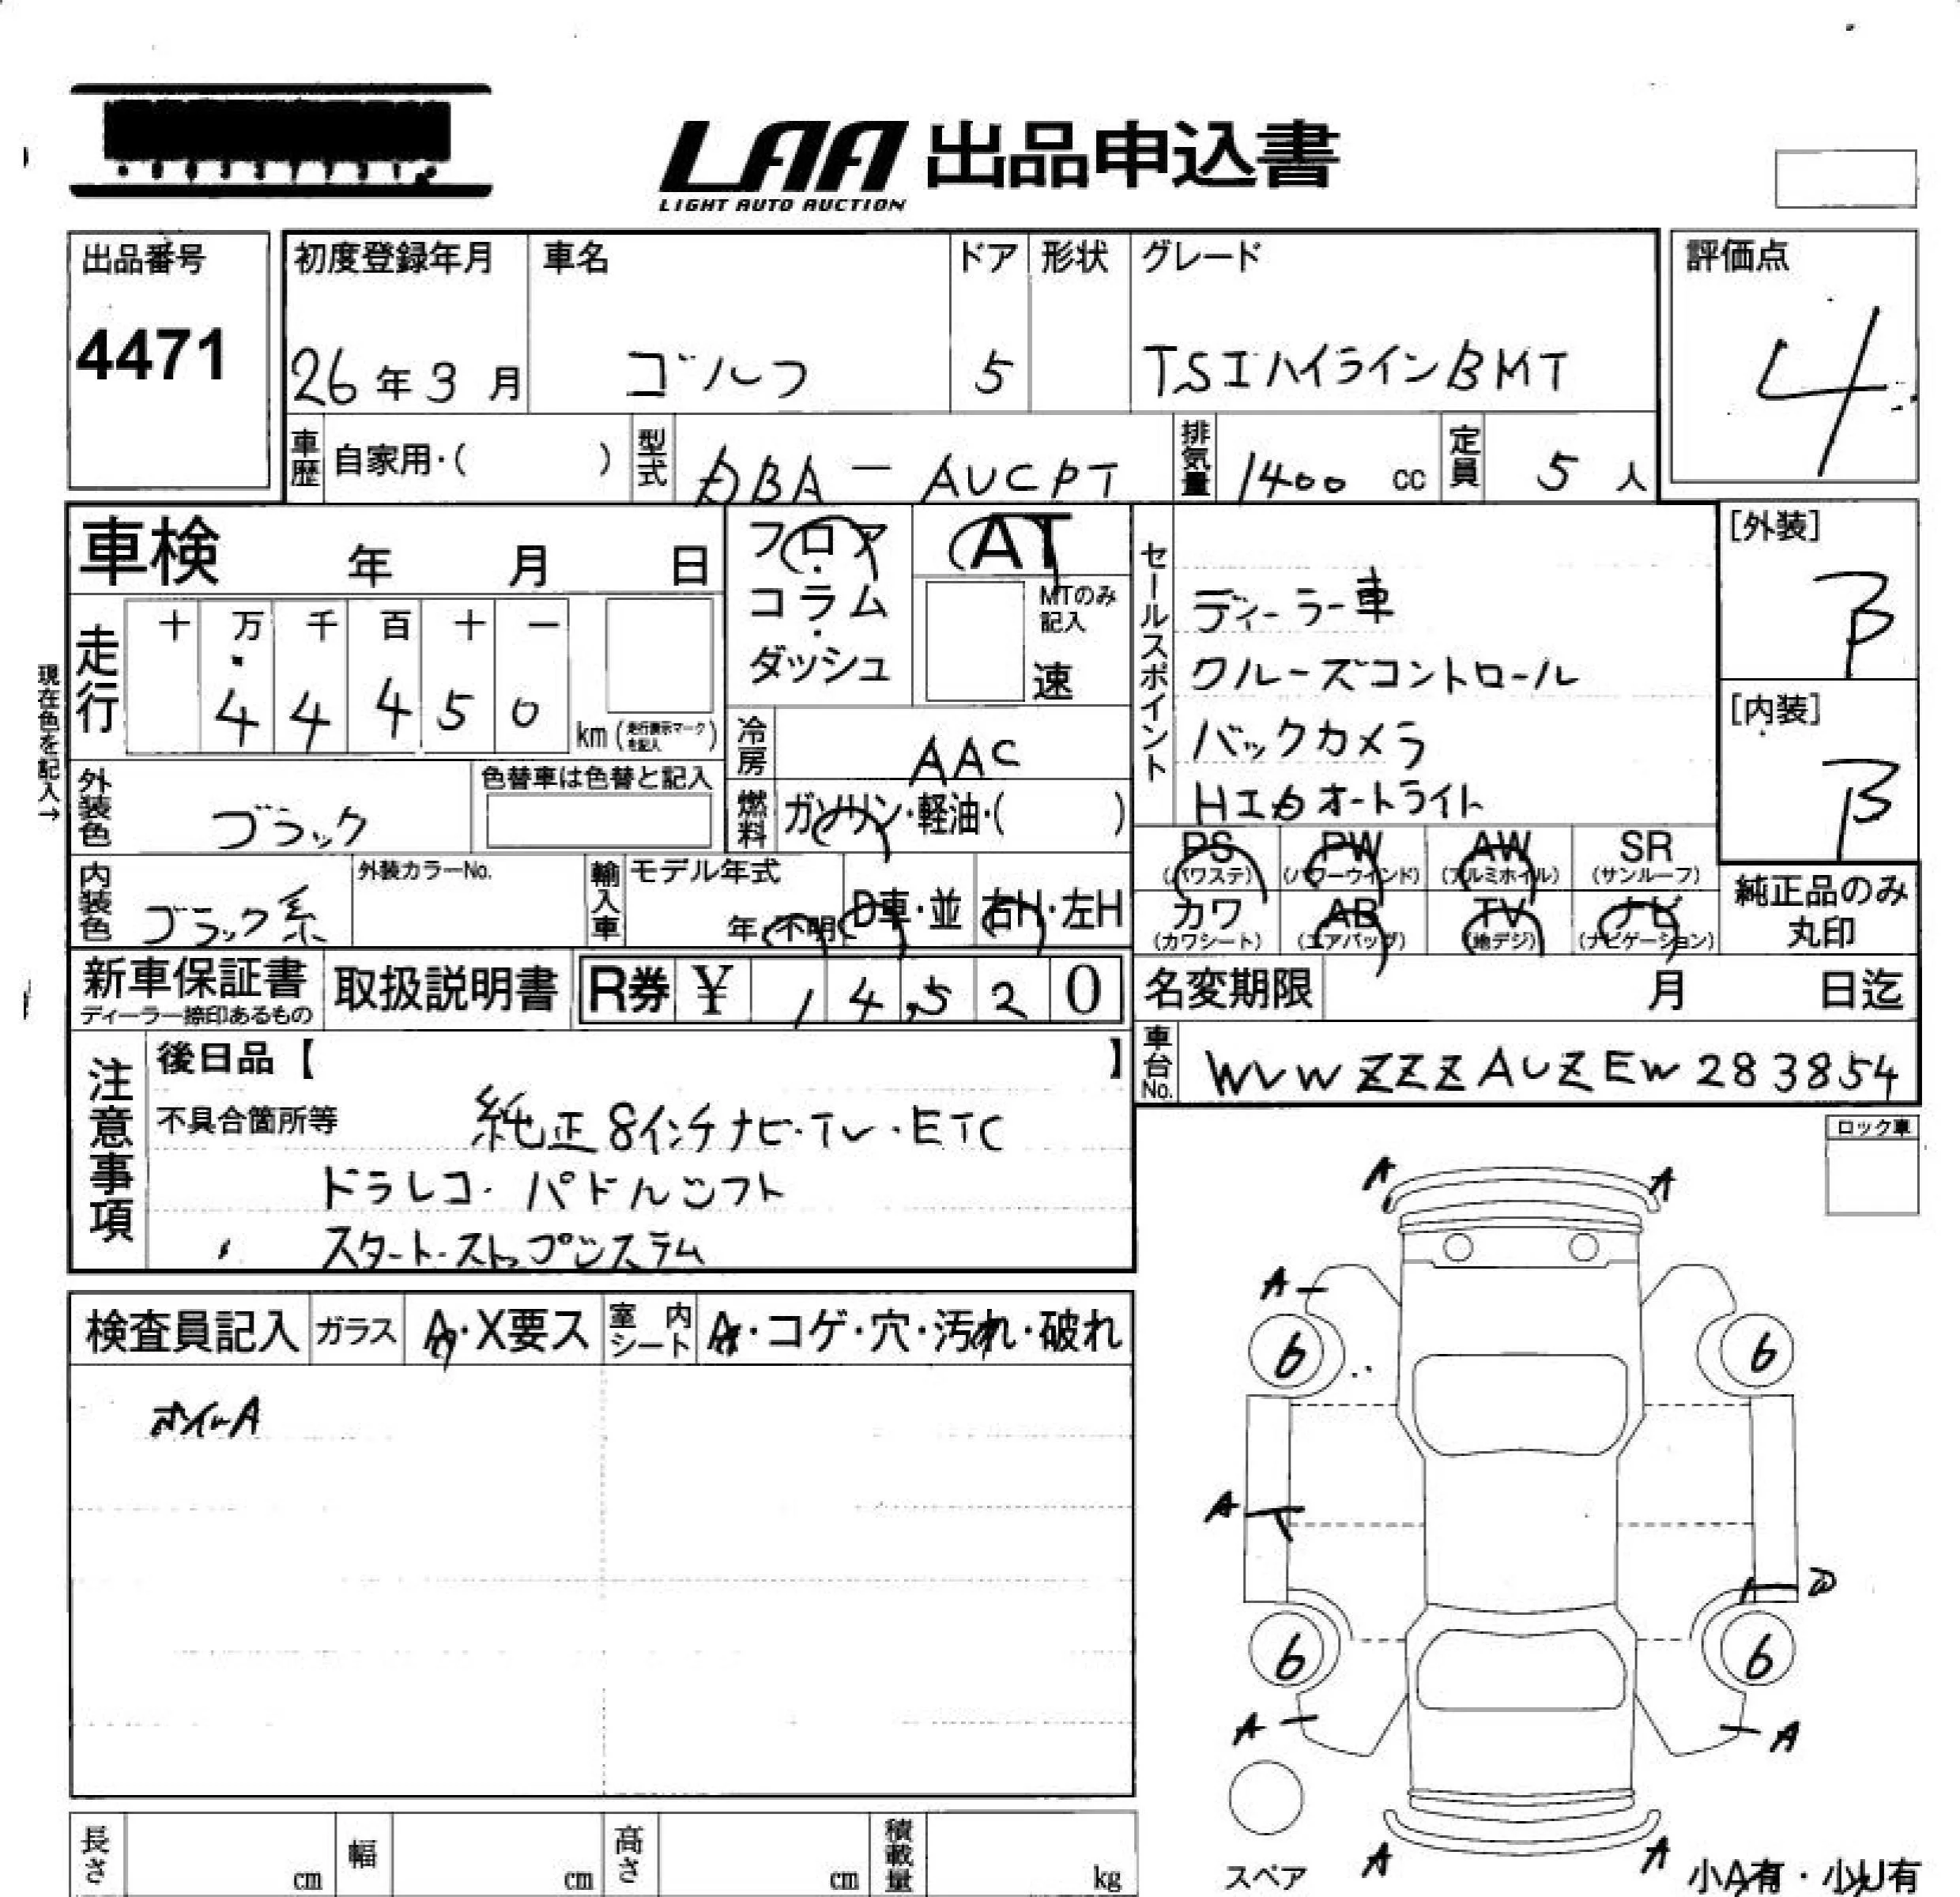 LAA 出品申込書
LIGHT AUTO AUCTION
出品番号
4471
初度登録年月
26年3月
車名
ゴルフ
ドア
5
形状
グレード
TSIハイラインBMT
評価点
4
車歴 自家用・( )
型式 DBA-AUCPT
排気量 1400 cc
定員 5人
車検 年 月 日
フロア・コラム・ダッシュ
AT
MTのみ記入
速
セールスポイント
ディーラー車
クルーズコントロール
バックカメラ
HIDオートライト
[外装]
B
[内装]
B
現在色を記入→
走行
十 万 千 百 十 一
4 4 4 5 0
km (走行表示マークを記入)
冷房 AAC
外装色 ブラック
色替車は色替と記入
燃料 ガソリン・軽油・( )
PS (パワステ)
PW (パワーウインド)
AW (アルミホイル)
SR (サンルーフ)
内装色 ブラック系
外装カラーNo.
輸入車
モデル年式
年・不明
D車・並
右H・左H
カワ (カワシート)
AB (エアバッグ)
TV (地デジ)
ナビ (ナビゲーション)
純正品のみ丸印
新車保証書
ディーラー捺印あるもの
取扱説明書
R券 ¥ 14,520
名変期限 月 日迄
車台No. WVWZZZAUZEW283854
注意事項
後日品【 】
不具合箇所等
純正8インチナビ・TV・ETC
ドラレコ・パドルシフト
スタート・ストップシステム
ロック車
検査員記入
ガラス A・X要ス
室内シート A・コゲ・穴・汚れ・破れ
ホイールA
A A
A
6 6
A
D
6 6
A A
A A
スペア
小A有・小U有
長さ cm
幅 cm
高さ cm
積載量 kg